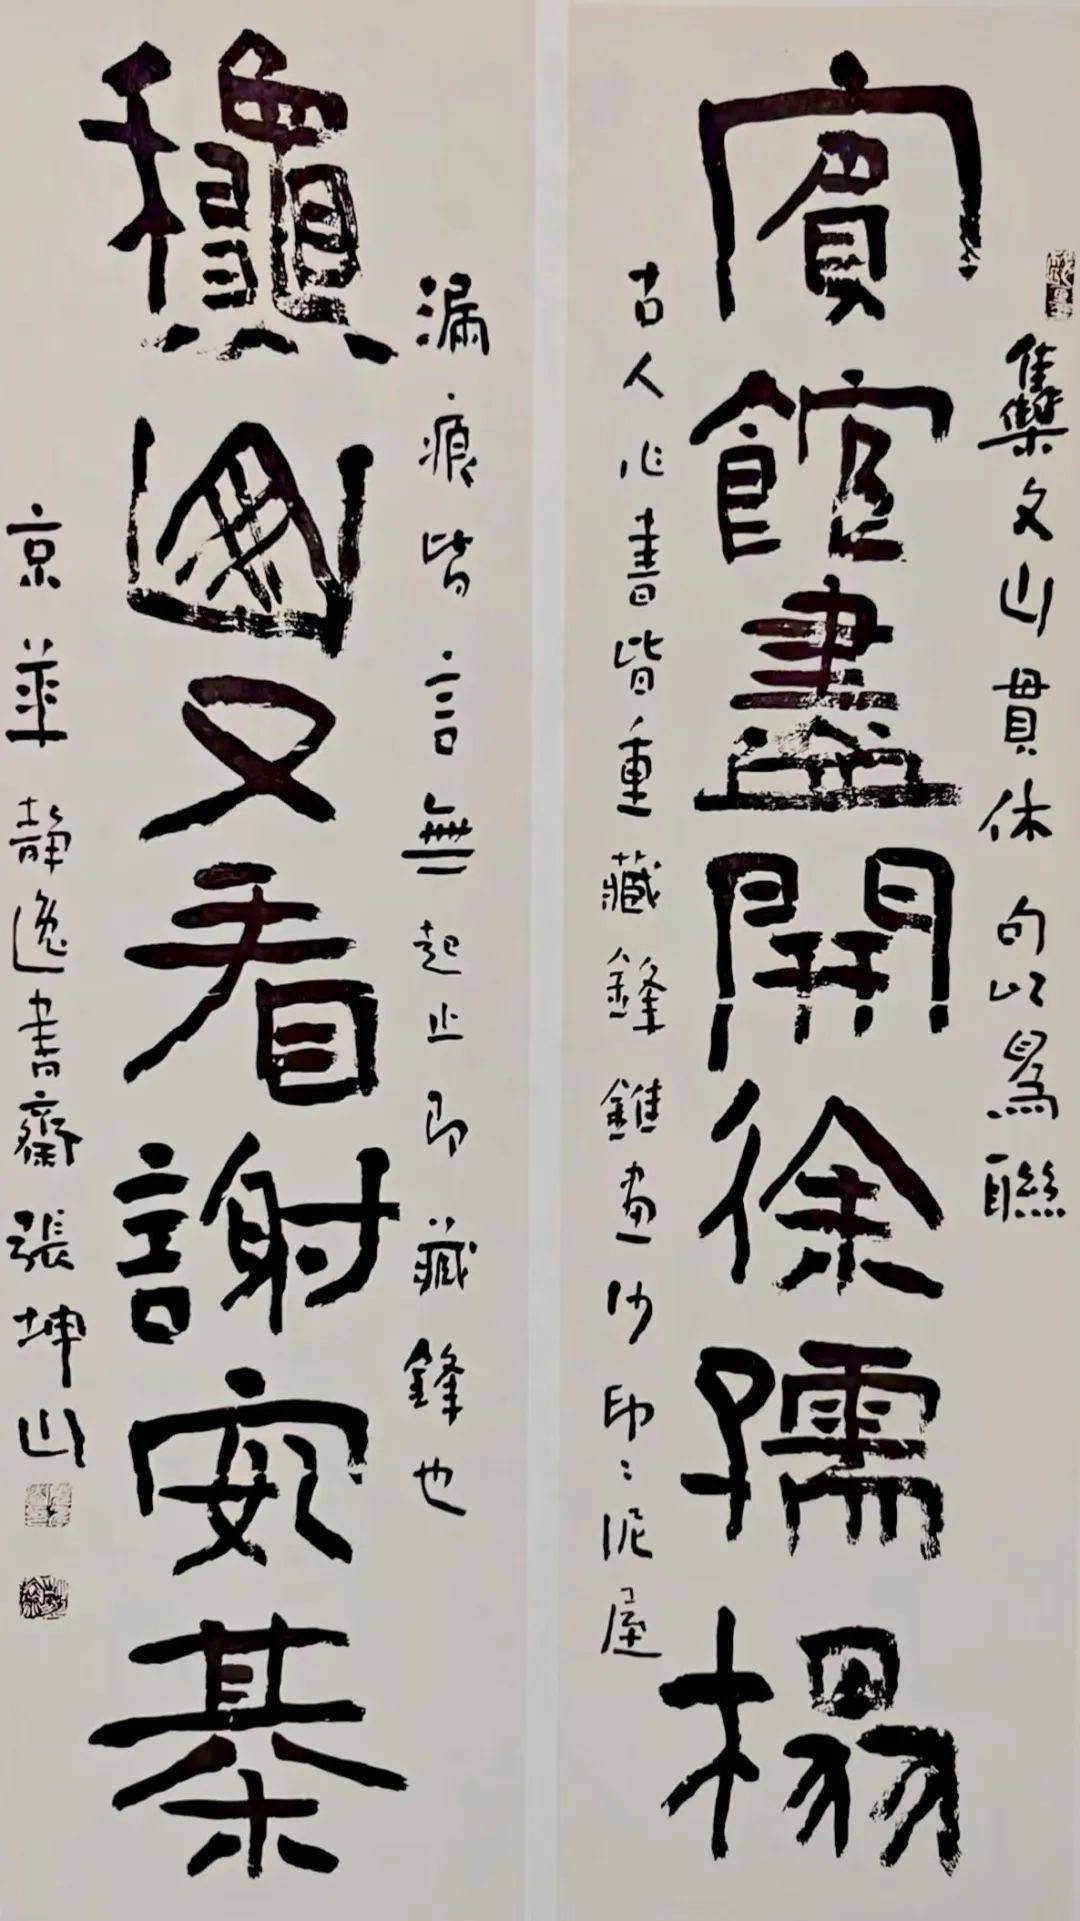 集文山貫休句以爲聯
賓館盡開徐孺榻
古人作書皆重藏鋒錐畫沙印〻泥屋
漏痕皆言無起止即藏鋒也
龝又看謝安棊
京華靜逸書齋張坤山